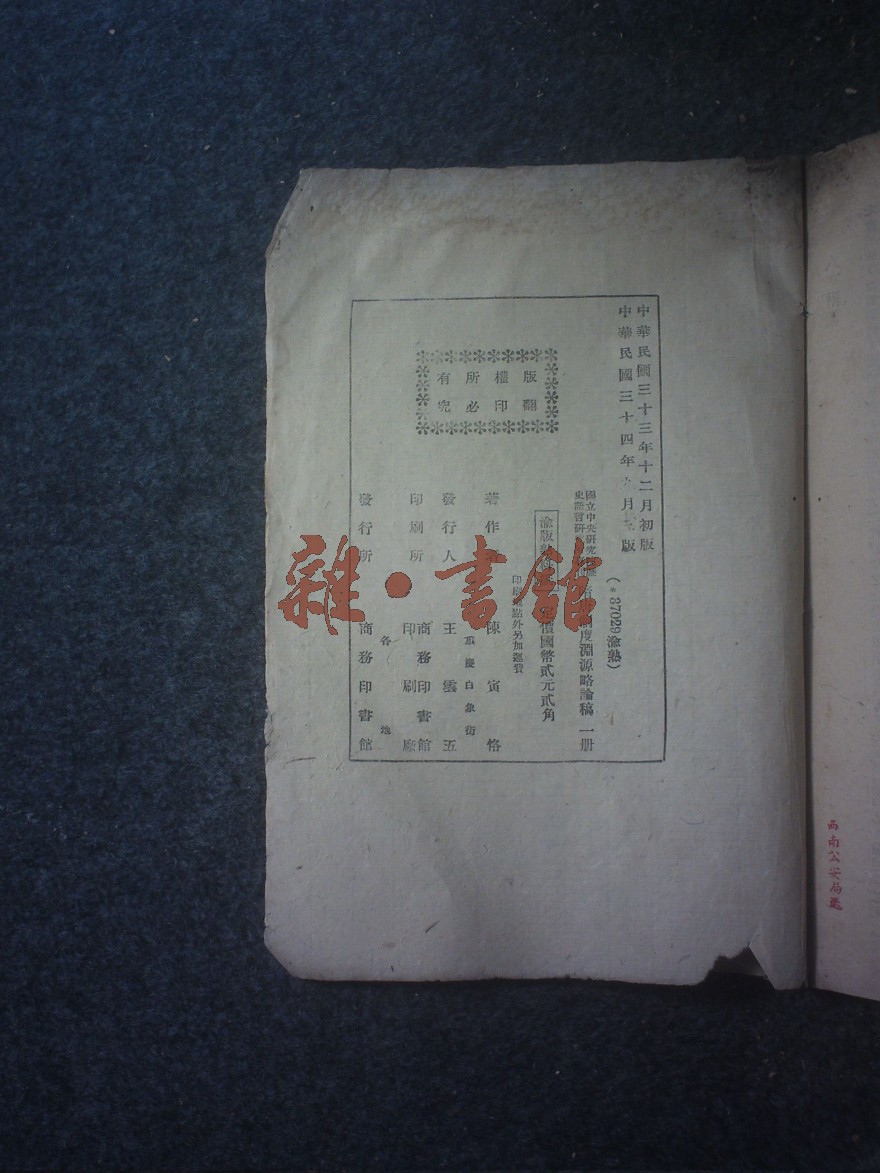 中華民國三十三年十二月初版
中華民國三十四年 月 版
(*87029渝熟)
國立中央研究
史語言研 制度淵源略論稿 一册
渝版 價國幣貳元貳角
印刷地點外另加運費
版權所有
翻印必究
著作 陳寅恪
發行人 王雲五
重慶白象街
印刷所 商務印書館
印刷廠
發行所 各地
商務印書館
雜·書館
西南公安局